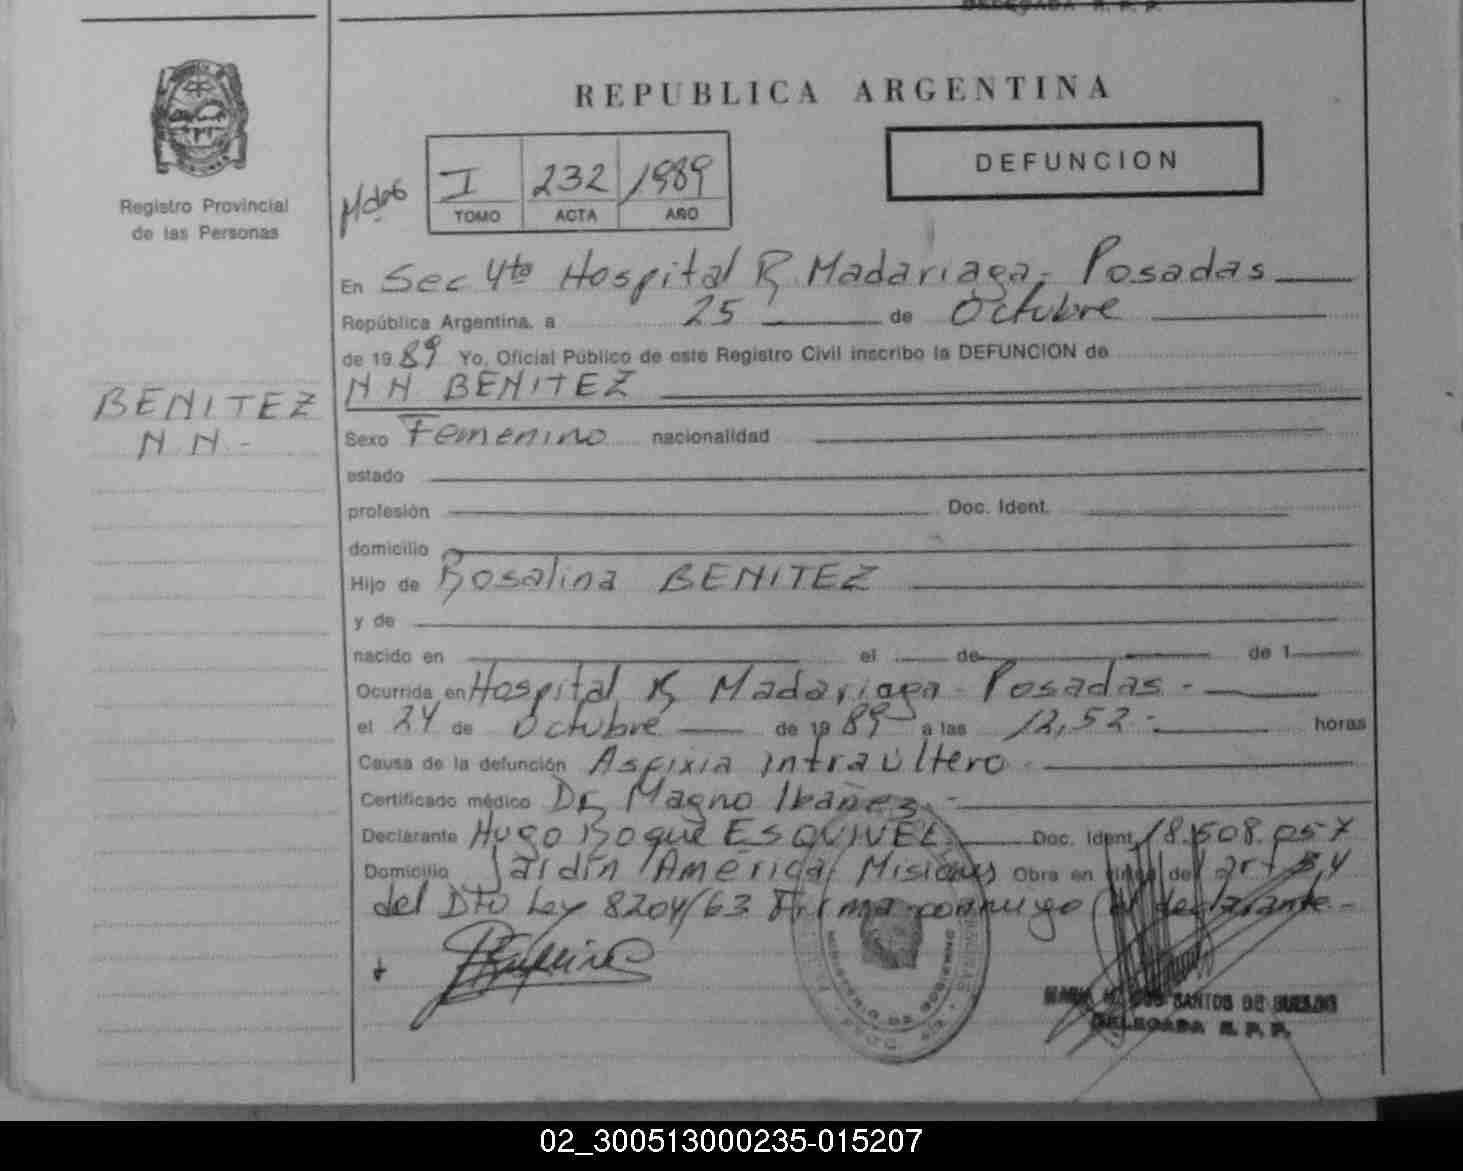 DELEGADA R. P. P.
REPUBLICA ARGENTINA
Registro Provincial
de las Personas
I 232 1989
TOMO ACTA AÑO
DEFUNCION
En Sec 4ta Hospital R. Madariaga - Posadas
República Argentina, a 25 de Octubre
de 1989 Yo, Oficial Público de este Registro Civil inscribo la DEFUNCION de
N N BENITEZ
BENITEZ
N.N.-
Sexo Femenino nacionalidad
estado
profesión Doc. Ident.
domicilio
Hijo de Rosalina BENITEZ
y de
nacido en el de de 1
Ocurrida en Hospital R. Madariaga - Posadas -
el 24 de Octubre de 1989 a las 12,52 - horas
Causa de la defunción Asfixia intraúltero -
Certificado médico Dr. Magno Ibañez -
Declarante Hugo Roque ESQUIVEL Doc. Ident. 18.508.057
Domicilio Jardín América, Misiones Obra en virtud del art 54
del Dto Ley 8204/63 Firma conmigo el declarante -
SANTOS DE
DELEGADA R. P. P.
02_300513000235-015207